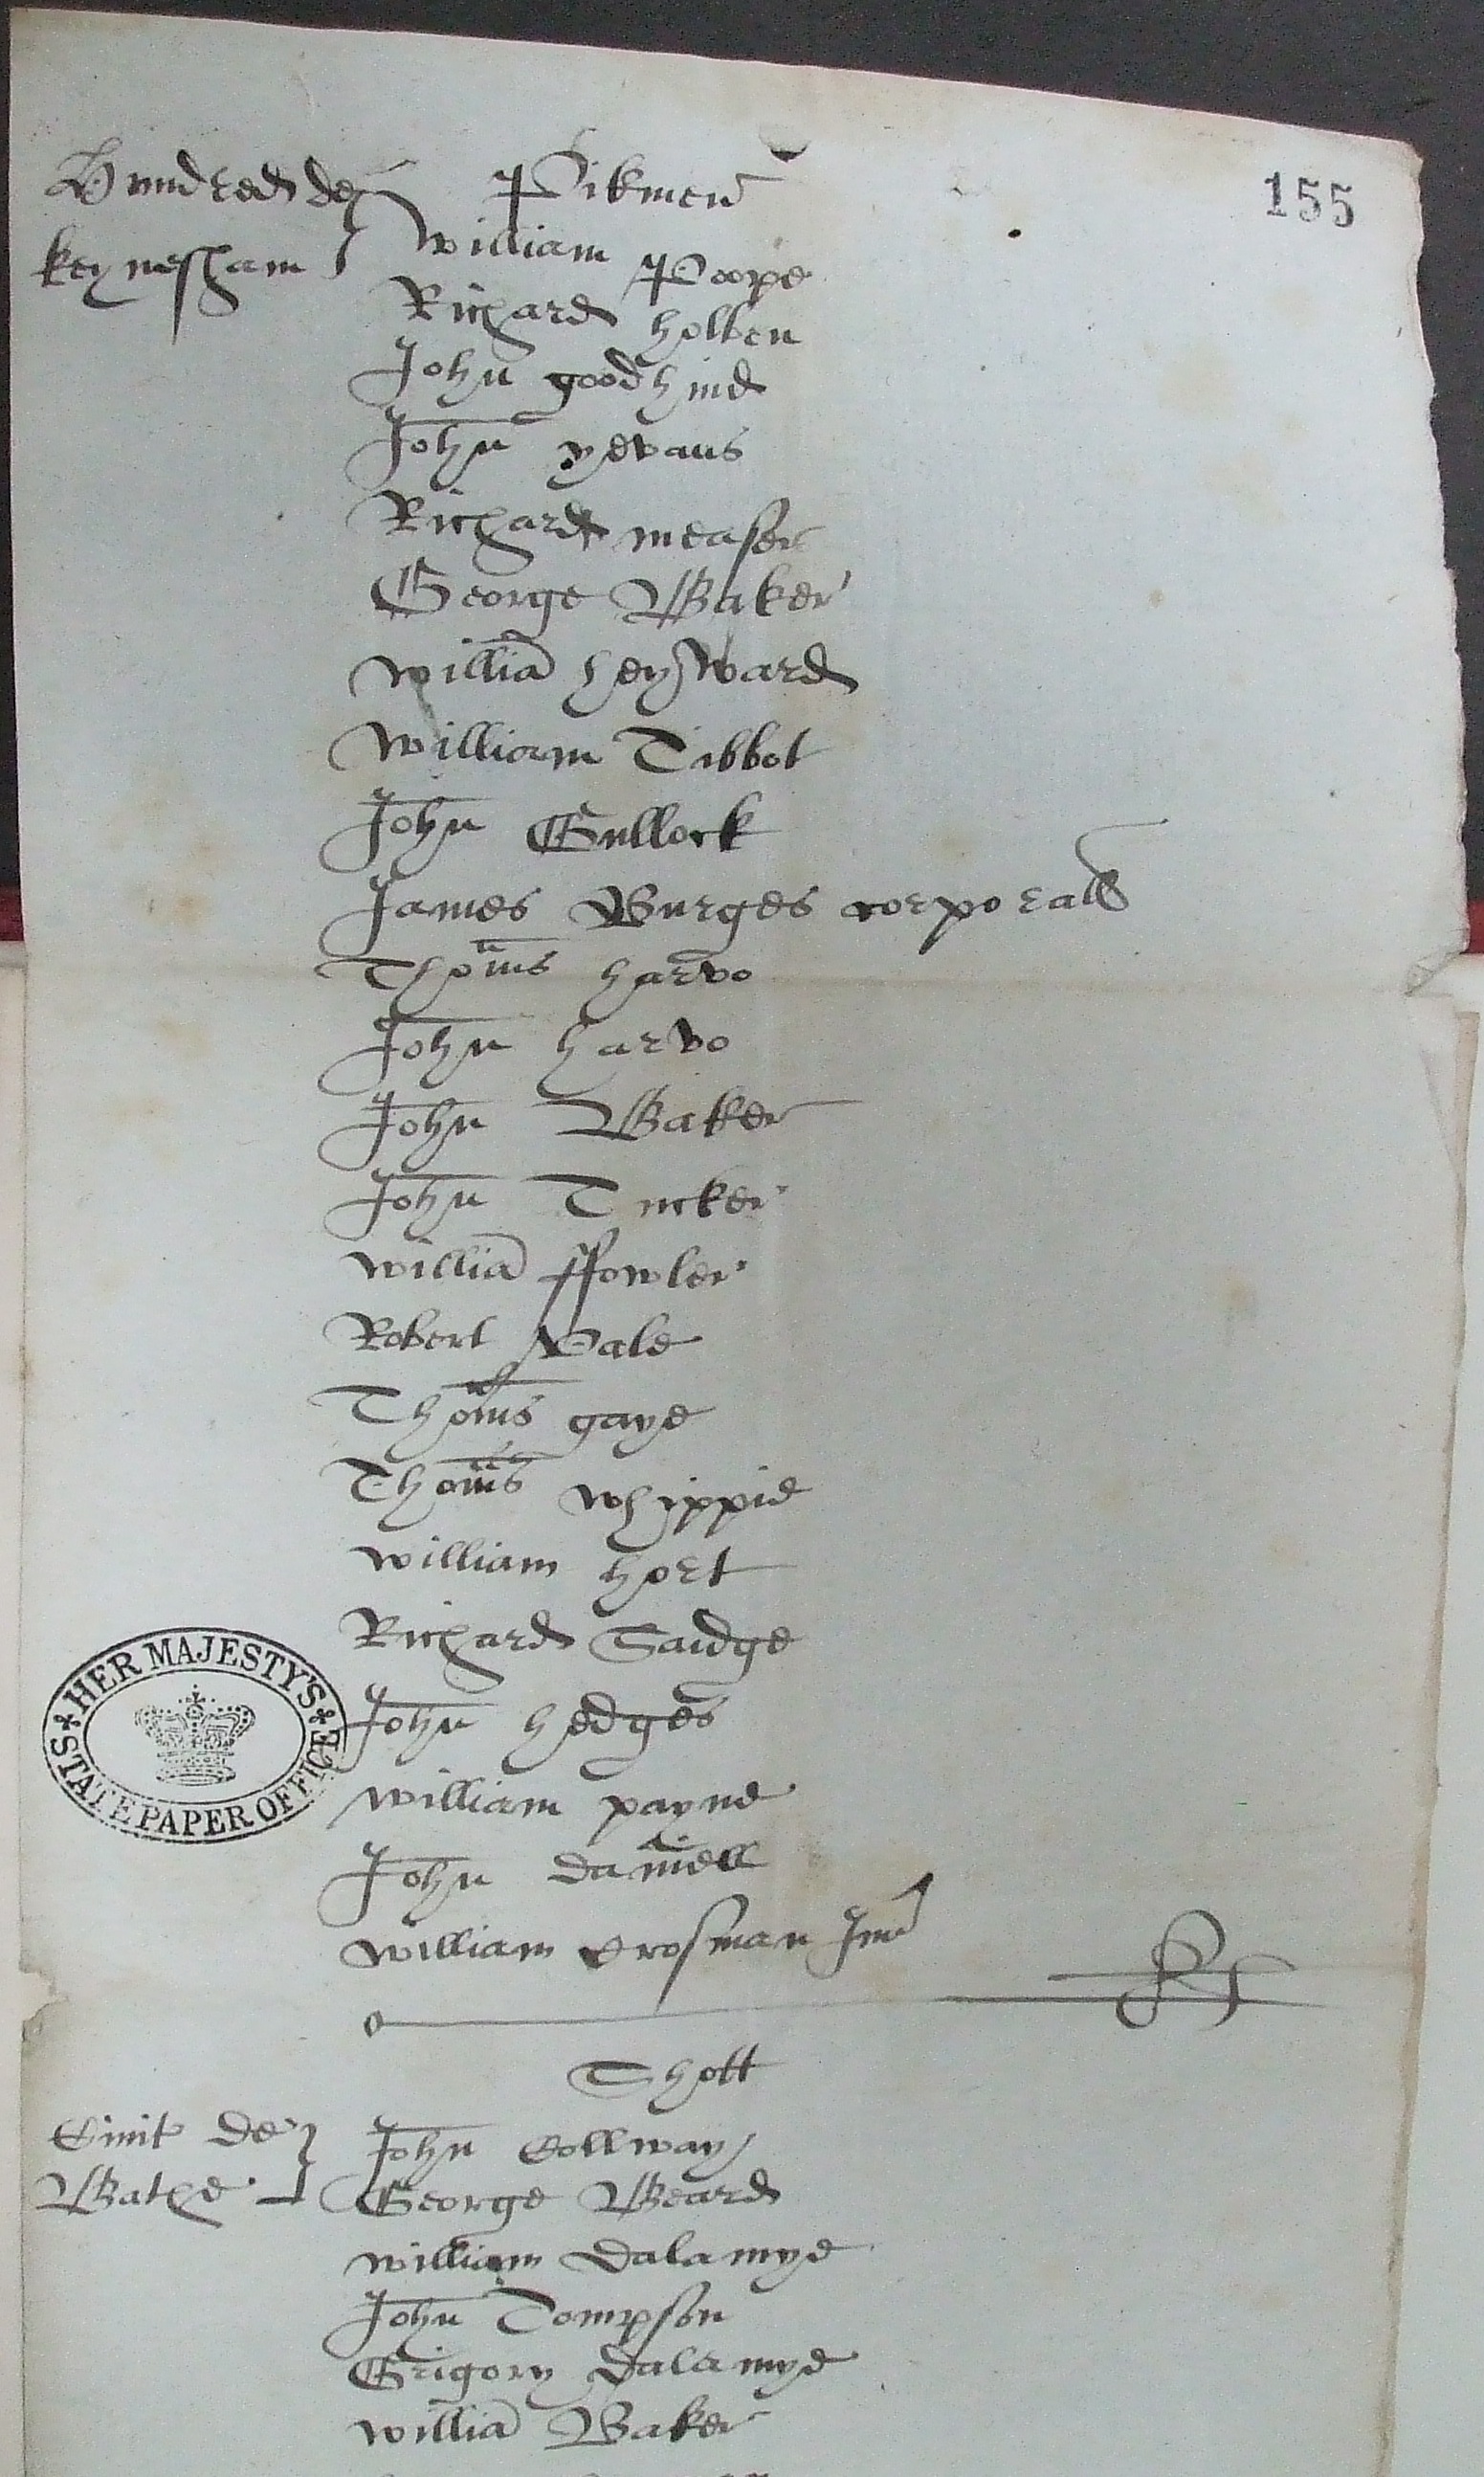 155
Hundred de
keynesham
Pikmen
William Poope
Richard holben
John goodhind
John yevans
Richard measer
George Baker
Willia heyward
William Tibbot
John Gullock
James Burges corporall
Thoms harvo
John harvo
John Baker
John Tucker
willia ffowler
Robert Vale
Thoms gaye
Thoms whippie
william hort
Richard Saidge
John hedges
william payne
John daniell
william Crosman Iun
Shott
Civit de
Bathe
John Collway
George Beard
william dalamye
John Tompson
Grigory dalamye
willia Baker
HER MAJESTY'S
STATE PAPER OFFICE